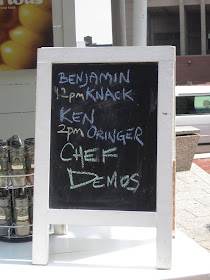 BENJAMIN
12pm KNACK
KEN
2pm ORINGER
CHEF
DEMOS